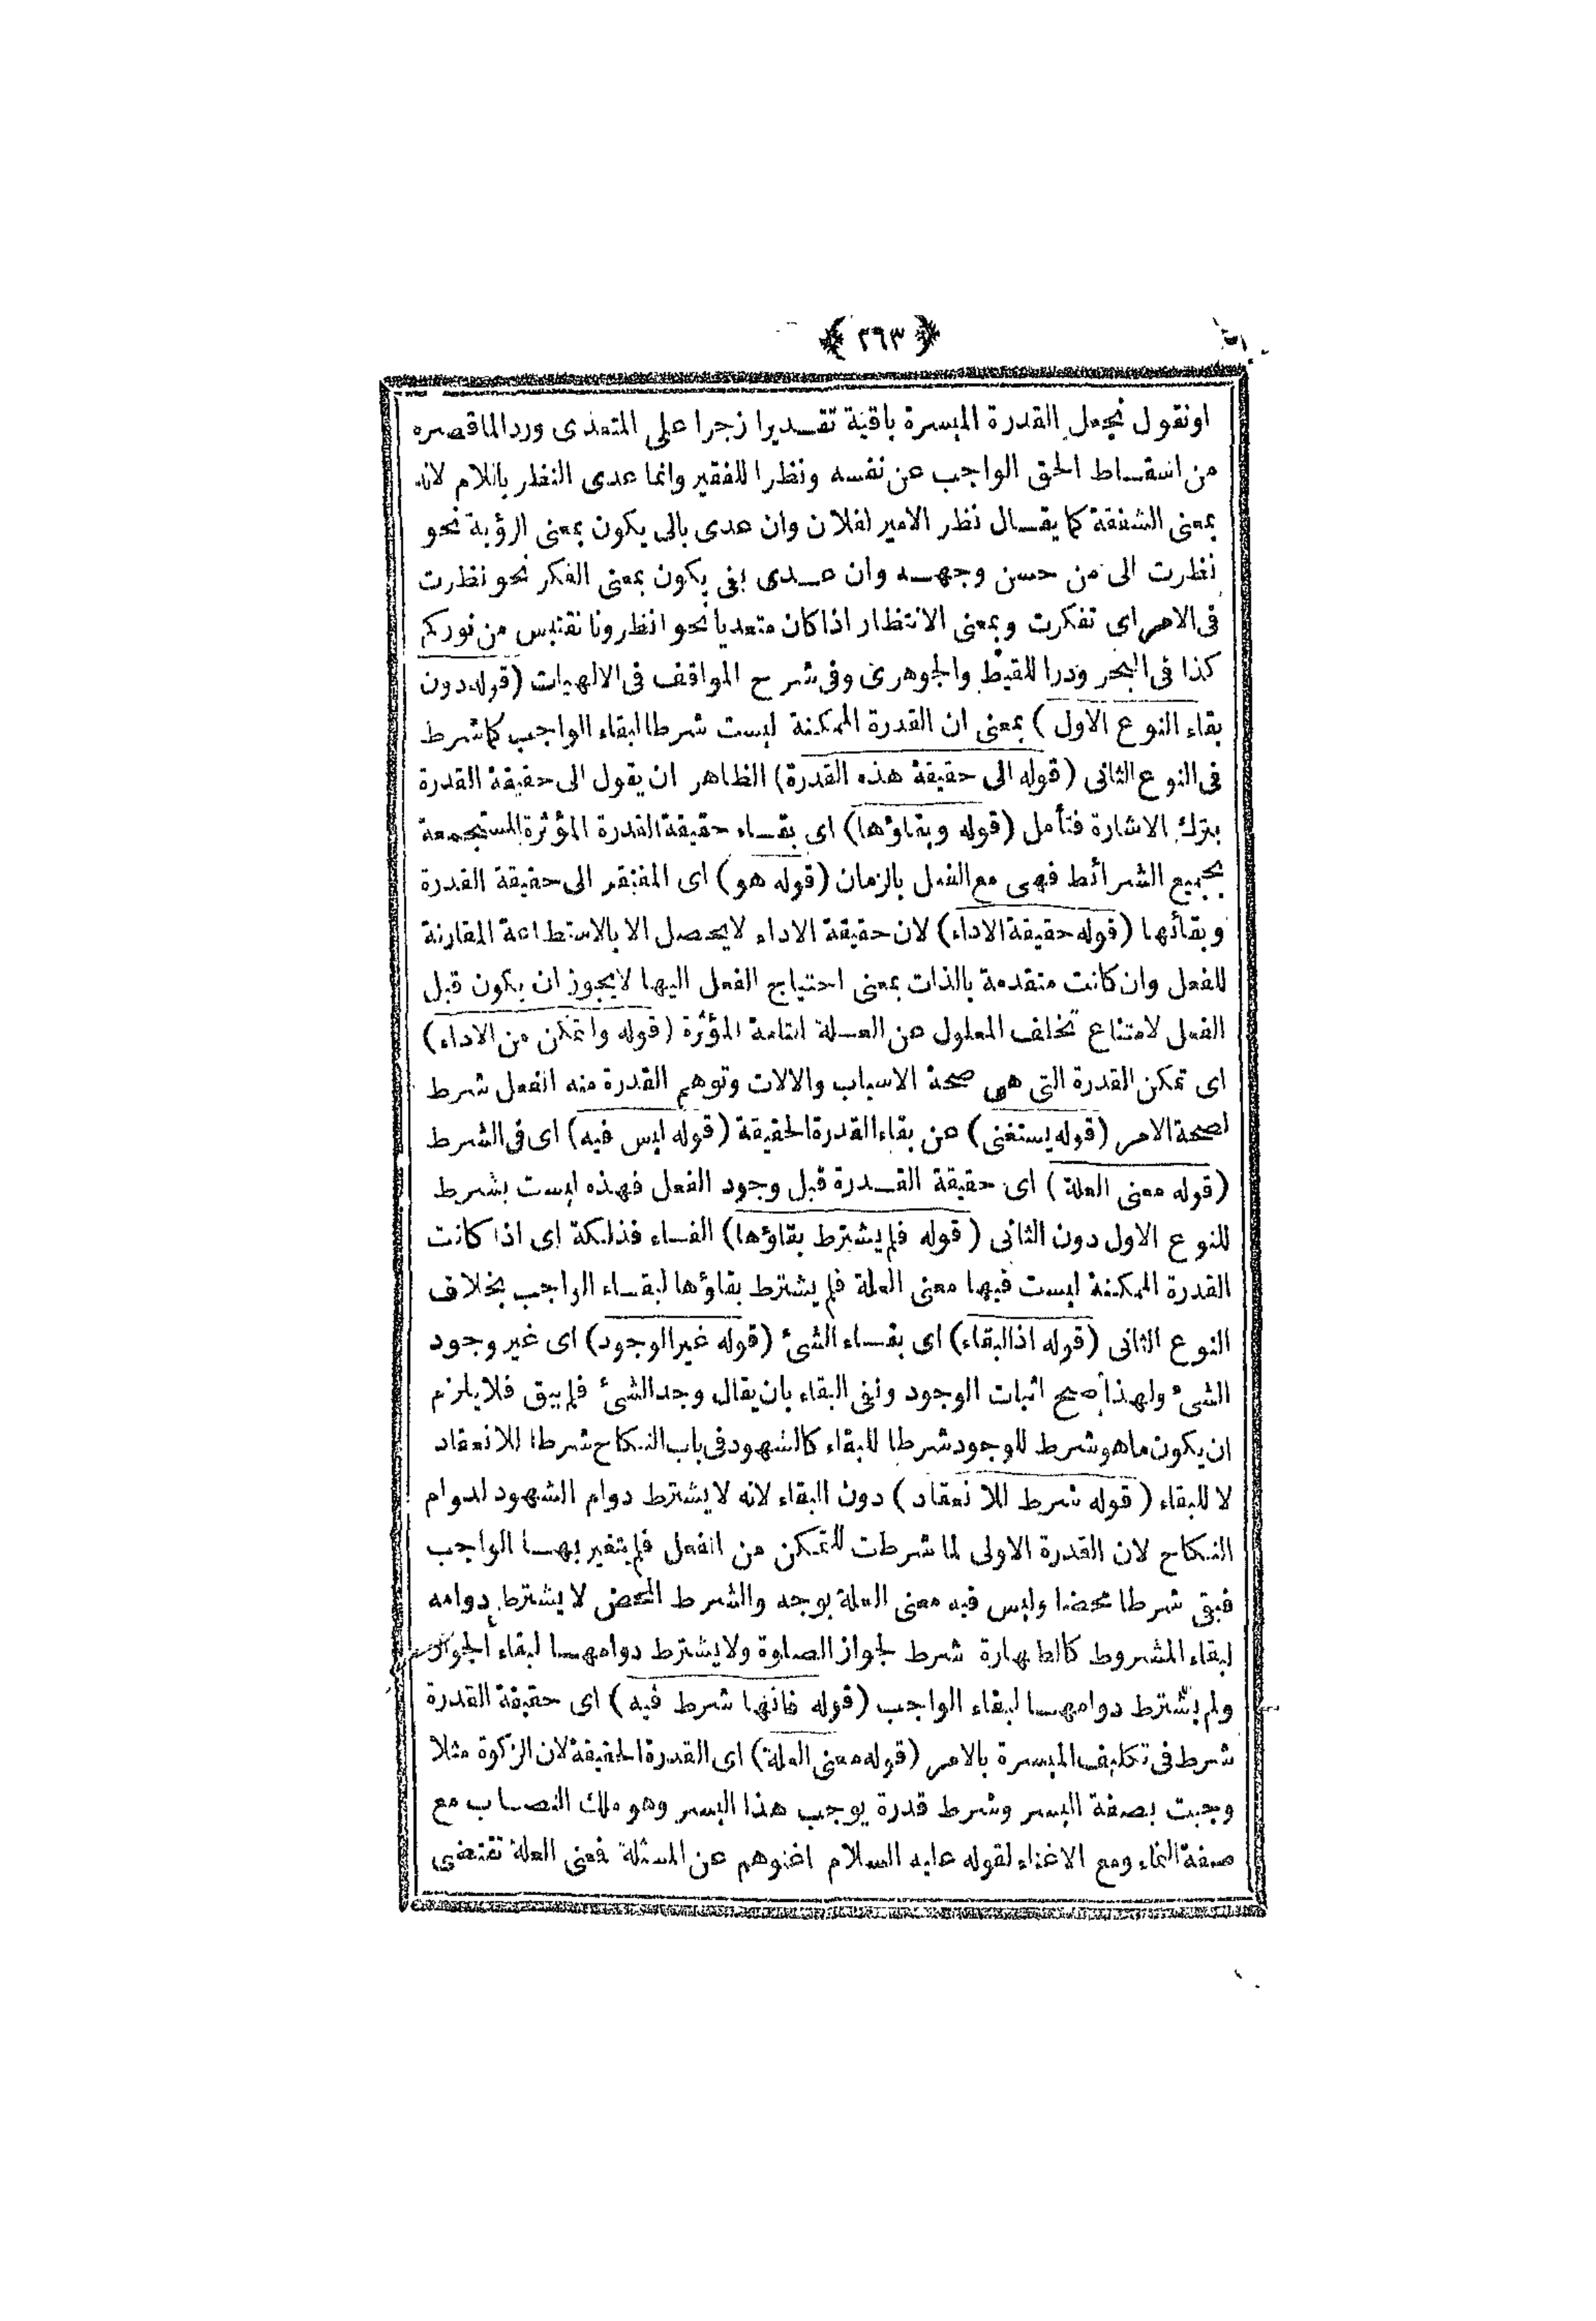 ﴿ ٢٩٣ ﴾
او نقول نجعل القدرة الميسرة باقية تقديرا زجرا على المتعدى وردا لما قصره
من اسقاط الحق الواجب عن نفسه ونظرا للفقير وانما عدى النظر باللام لانه
بمعنى الشفقة كما يقال نظر الامير لفلان وان عدى بالى يكون بمعنى الرؤية نحو
نظرت الى من حسن وجهه وان عدى بفى يكون بمعنى الفكر نحو نظرت
فى الامر اى تفكرت وبمعنى الانتظار اذا كان متعديا نحو انظرونا نقتبس من نوركم
كذا فى البحر ودرا للقيط والجوهرى وفى شرح المواقف فى الالهيات (قوله دون
بقاء النوع الاول) بمعنى ان القدرة الممكنة ليست شرطا لبقاء الواجب كما شرط
فى النوع الثانى (قوله الى حقيقة هذه القدرة) الظاهر ان يقول الى حقيقة القدرة
بترك الاشارة فتأمل (قوله وبقاؤها) اى بقاء حقيقة القدرة المؤثرة المستجمعة
بجميع الشرائط فهى مع الفعل بالزمان (قوله هو) اى المفتقر الى حقيقة القدرة
وبقائها (قوله حقيقة الاداء) لان حقيقة الاداء لايحصل الا بالاستطاعة المقارنة
للفعل وان كانت متقدمة بالذات بمعنى احتياج الفعل اليها لايجوز ان يكون قبل
الفعل لامتناع تخلف المعلول عن العلة التامة المؤثرة (قوله والتمكن من الاداء)
اى تمكن القدرة التى هى صحة الاسباب والالات وتوهم القدرة منه الفعل شرط
لصحة الامر (قوله يستغنى) عن بقاء القدرة الحقيقة (قوله ليس فيه) اى فى الشرط
(قوله معنى العلة) اى حقيقة القدرة قبل وجود الفعل فهذه ليست بشرط
للنوع الاول دون الثانى (قوله فلم يشترط بقاؤها) الفاء فذلكة اى اذا كانت
القدرة الممكنة ليست فيها معنى العلة فلم يشترط بقاؤها لبقاء الواجب بخلاف
النوع الثانى (قوله اذ البقاء) اى بقاء الشئ (قوله غير الوجود) اى غير وجود
الشئ ولهذا صح اثبات الوجود ونفى البقاء بان يقال وجد الشئ فلم يبق فلا يلزم
ان يكون ماهو شرط للوجود شرطا للبقاء كالشهود فى باب النكاح شرطا للانعقاد
لا للبقاء (قوله شرط للانعقاد) دون البقاء لانه لايشترط دوام الشهود لدوام
النكاح لان القدرة الاولى لما شرطت للتمكن من الفعل فلم يتغير بها الواجب
فبقى شرطا محضا وليس فيه معنى العلة بوجه والشرط المحض لايشترط دوامه
لبقاء المشروط كالطهارة شرط لجواز الصلوة ولايشترط دوامها لبقاء الجواز
ولم يشترط دوامها لبقاء الواجب (قوله فانها شرط فيه) اى حقيقة القدرة
شرط فى تكليف الميسرة بالامر (قوله معنى العلة) اى القدرة الحقيقة لان الزكوة مثلا
وجبت بصفة اليسر وشرط قدرة يوجب هذا اليسر وهو ملك النصاب مع
صفة النماء ومع الاغناء لقوله عليه السلام اغنوهم عن المسئلة فمعنى العلة تقتضى